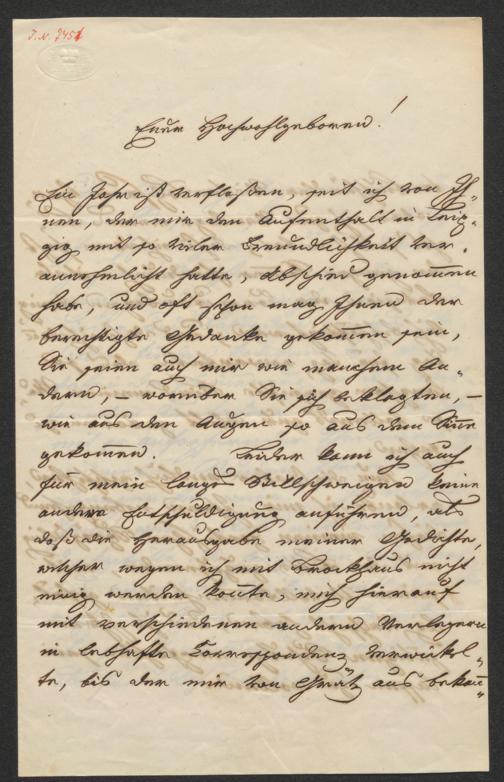 J. N. 3451
Euer Hochwohlgeboren!
Ein Jahr ist verflossen, seit ich von Ih-
nen, der mir den Aufenthalt in Leip-
zig mit so vieler Freundlichkeit ver-
annehmlicht hatte, Abschied genommen
habe, und oft schon mag Ihnen der
berechtigte Gedanke gekommen sein,
Sie seien auch mir wie manchem An-
dern, – worüber Sie sich beklagten, –
wie aus den Augen so aus dem Sinne
gekommen. Leider kann ich auch
für mein langes Stillschweigen keine
andere Entschuldigung anführen, als
daß die Herausgabe meiner Gedichte,
welcher wegen ich mit Brockhaus nicht
einig werden konnte, mich hierauf
mit verschiedenen andern Verlegern
in lebhafte Correspondenz verwickel-
te, bis der mir von Graz aus bekan-